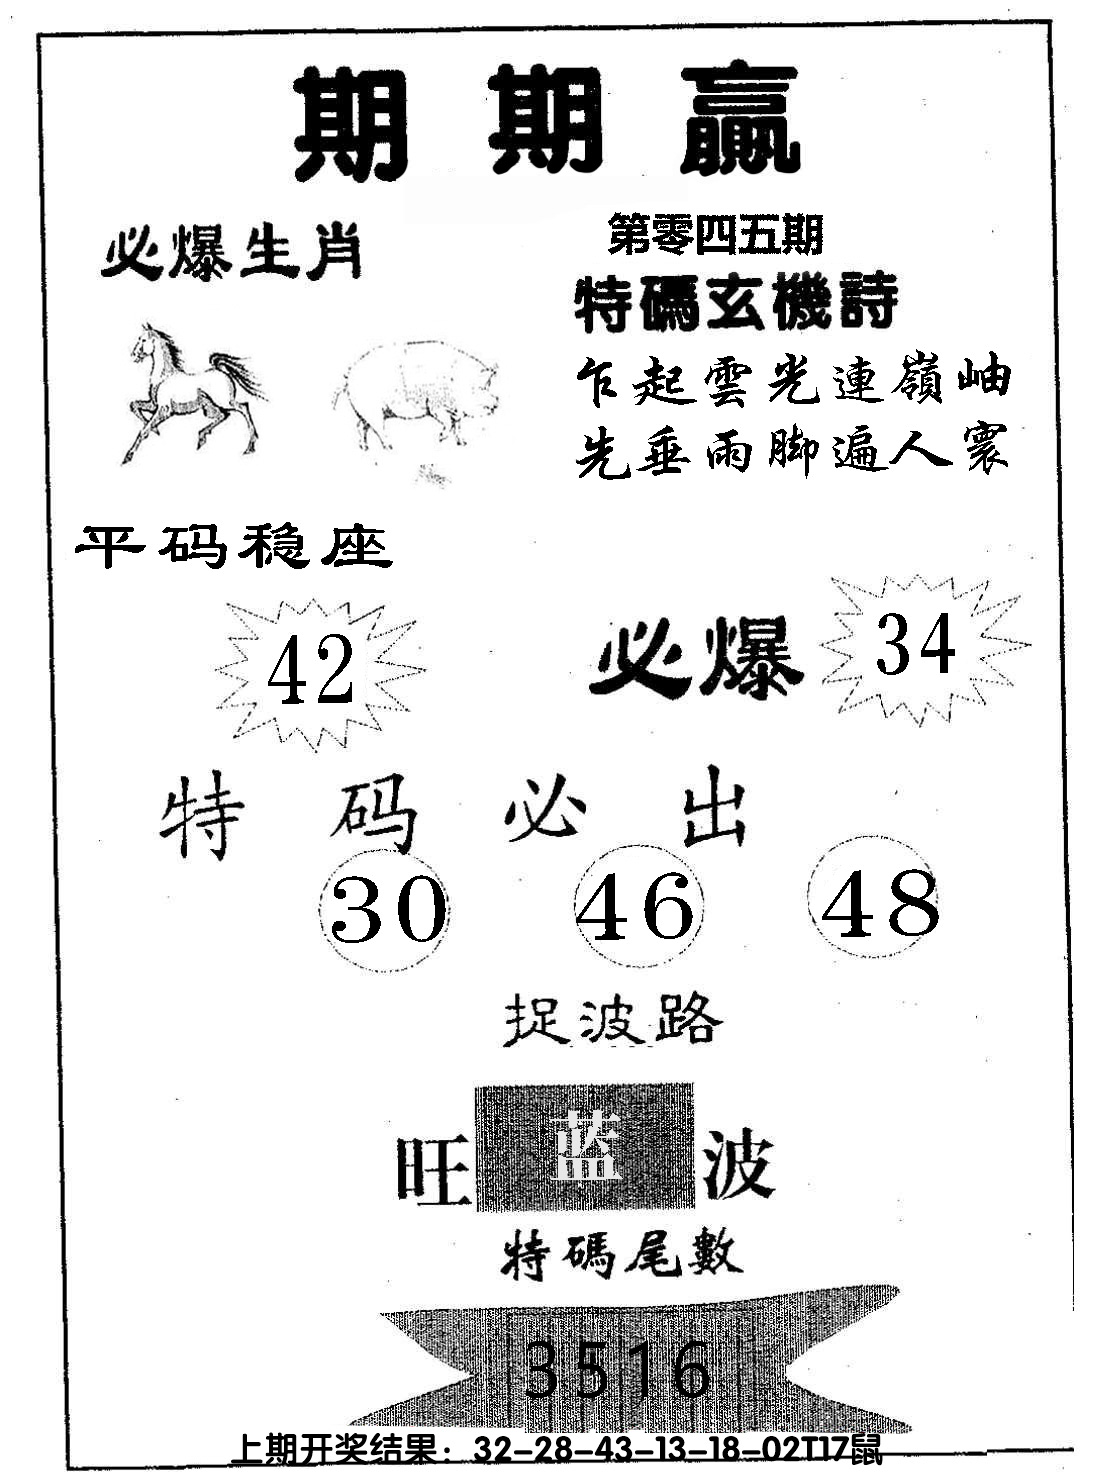 期期贏
必爆生肖
第零四五期
特碼玄機詩
乍起雲光連嶺岫
先垂雨脚遍人寰
平码稳座
42
必爆 34
特码必出
30 46 48
捉波路
旺蓝波
特碼尾數
3516
上期开奖结果：32-28-43-13-18-02T17鼠